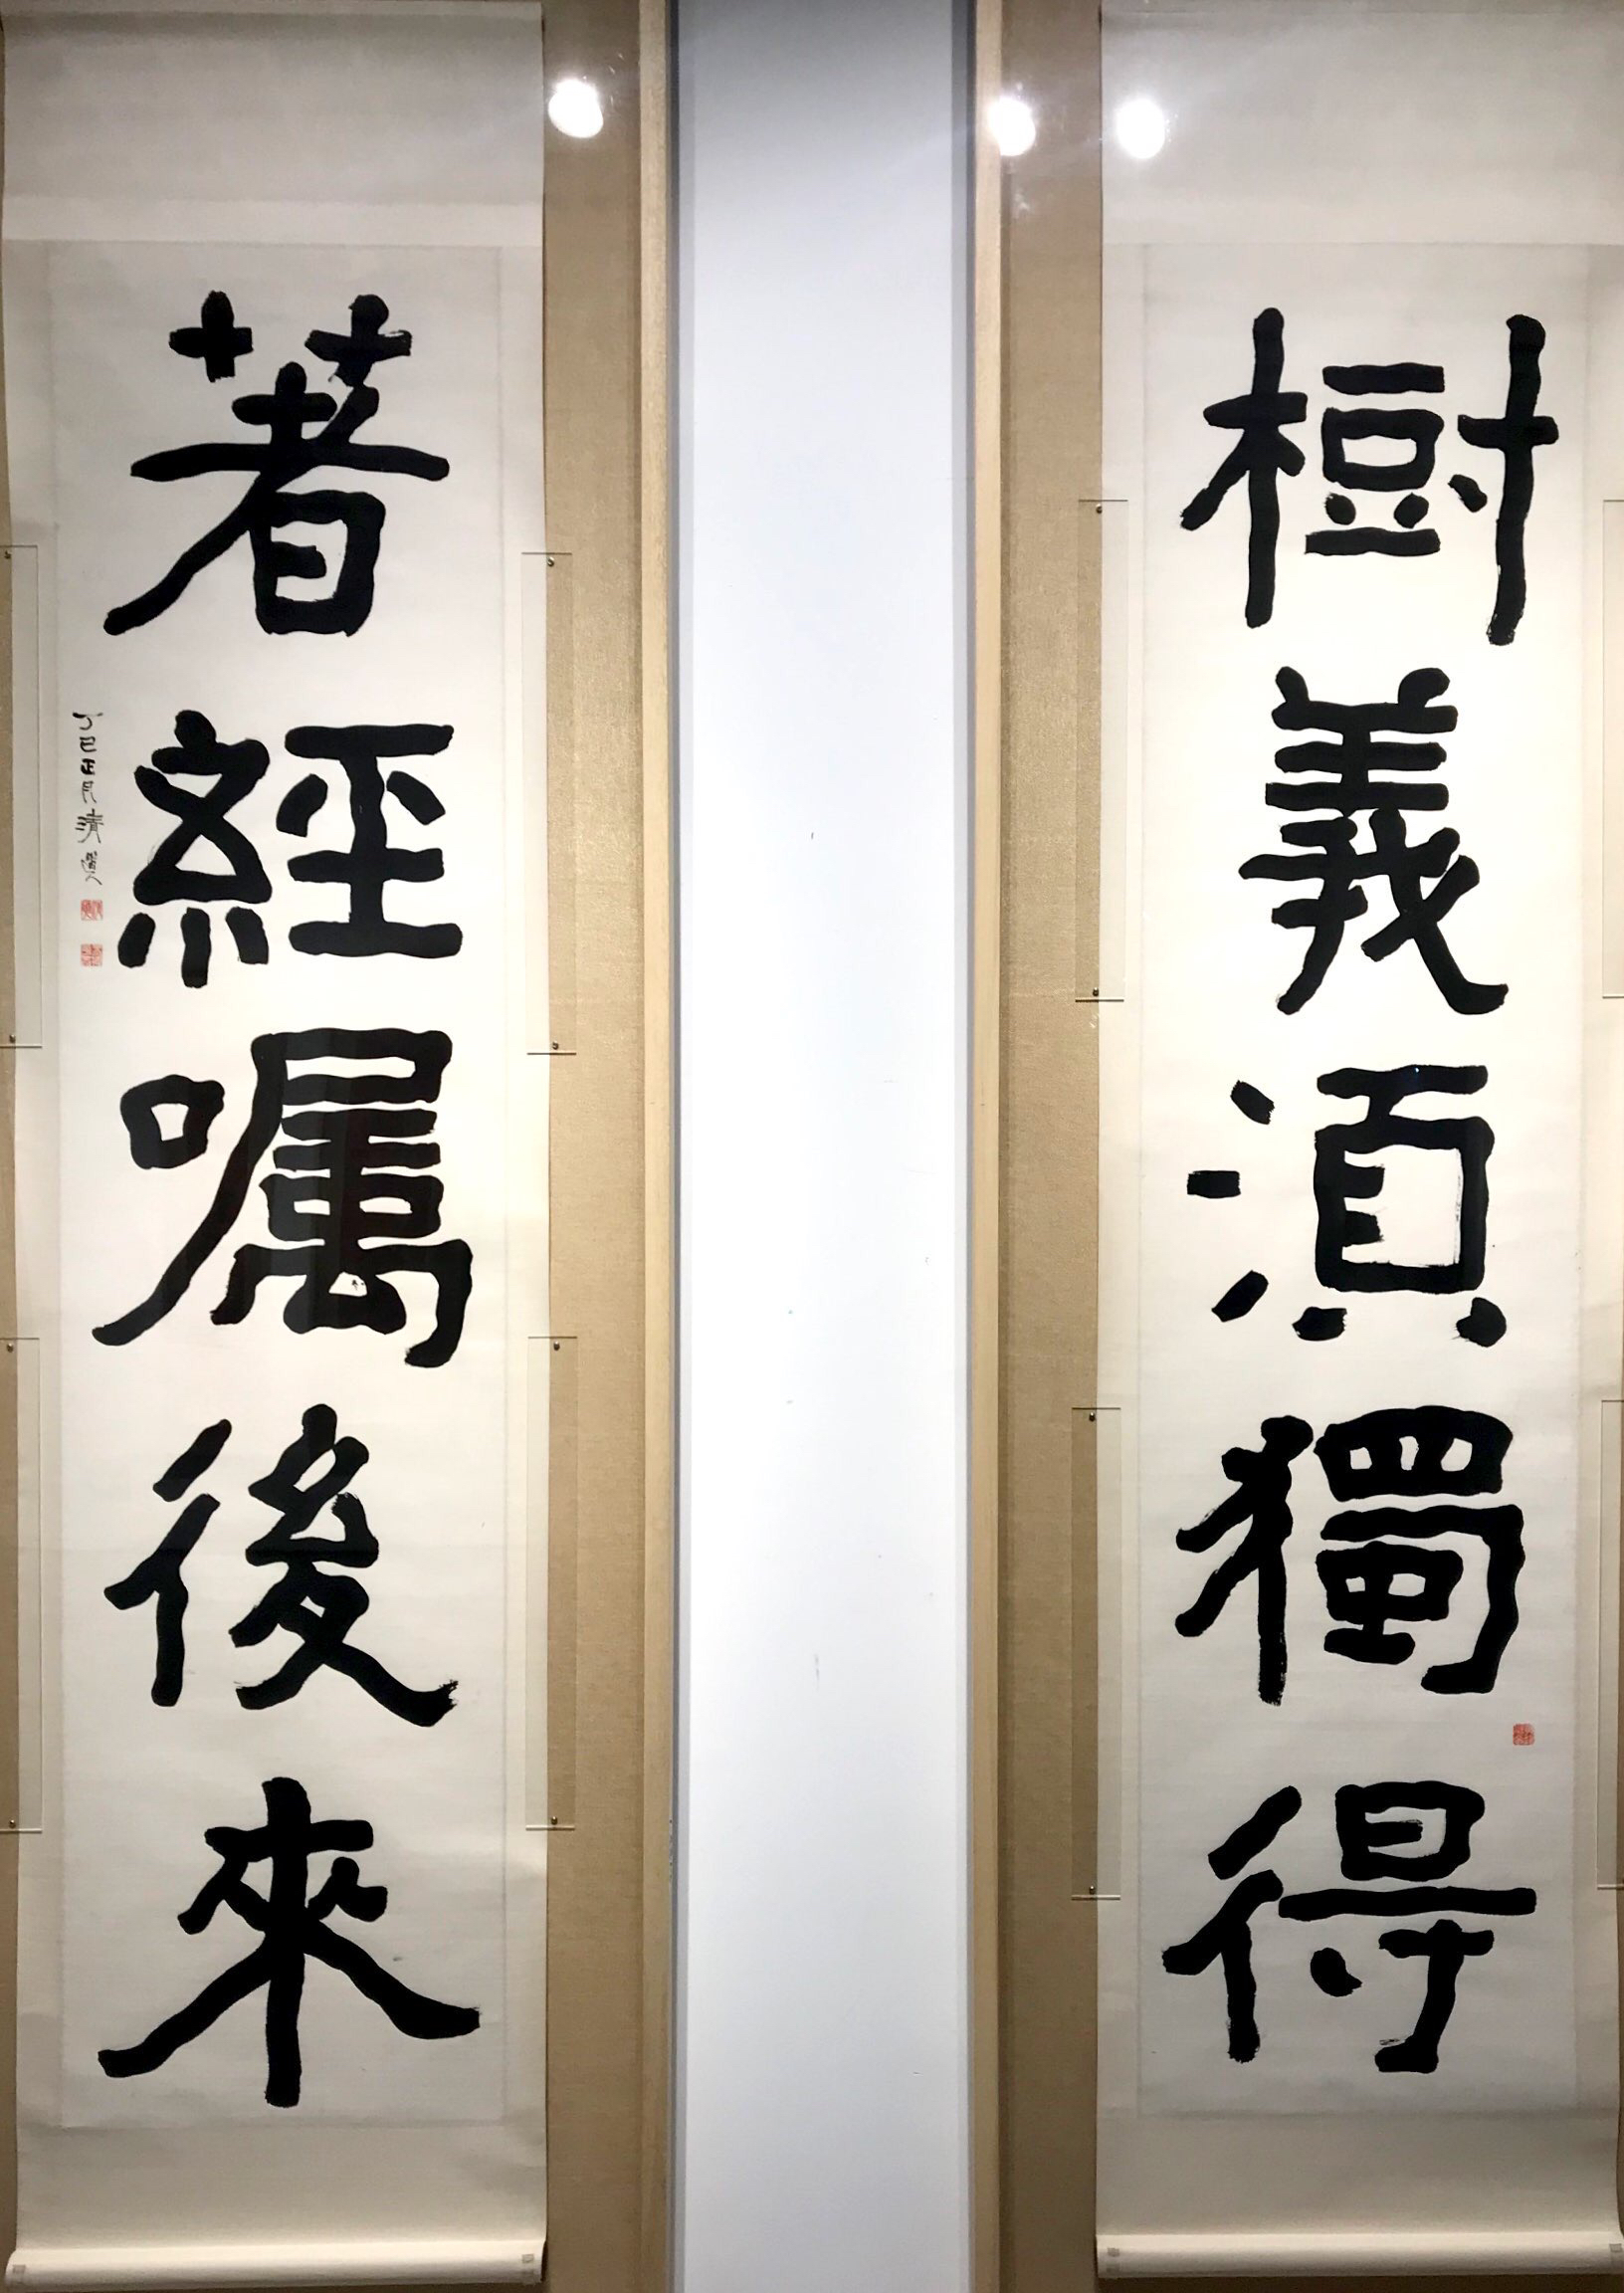 樹義須獨得
著經囑後來
丁巳正月清道人